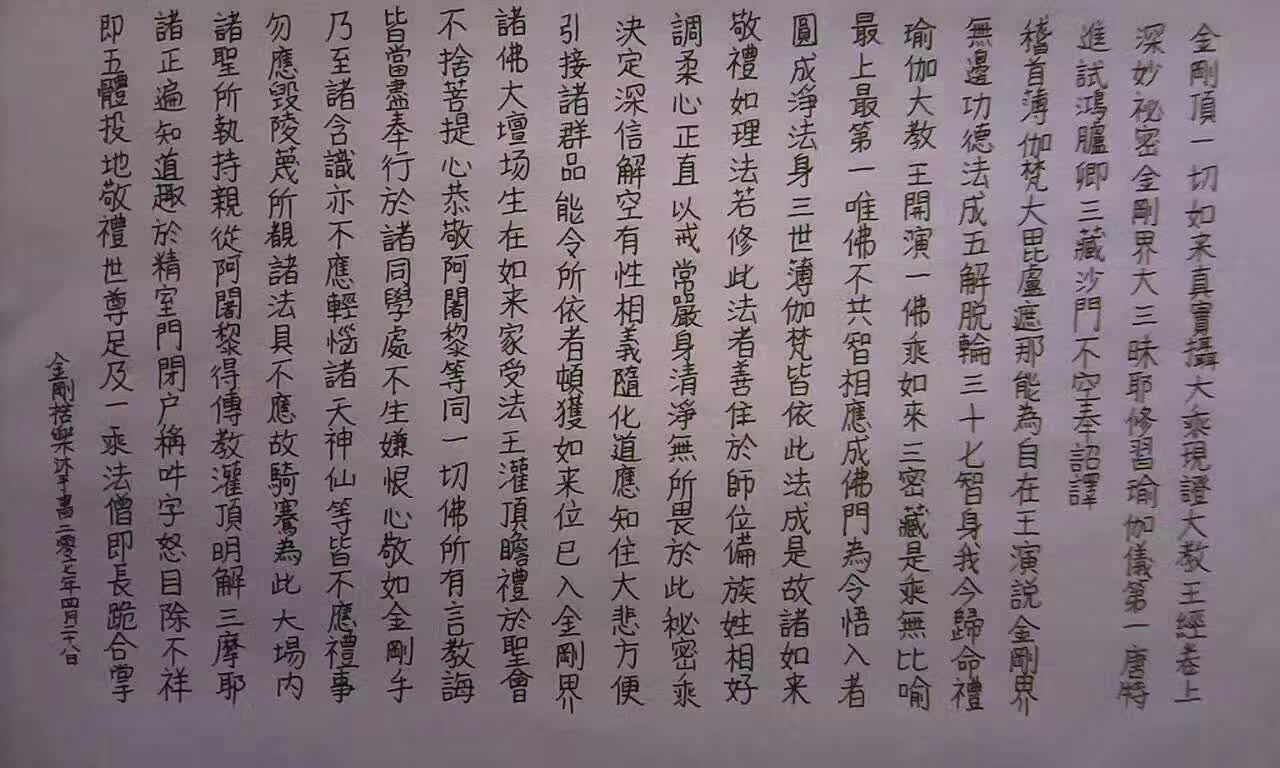 金剛頂一切如来真實攝大乘現證大教王經卷上
深妙祕密金剛界大三昧耶修習瑜伽儀第一唐特
進試鴻臚卿三藏沙門不空奉詔譯
稽首薄伽梵大毘盧遮那能為自在王演説金剛界
無邊功德法成五解脱輪三十七智身我今歸命禮
瑜伽大教王開演一佛乘如來三密藏是乘無比喻
最上最第一唯佛不共智相應成佛門為令悟入者
圓成淨法身三世薄伽梵皆依此法成是故諸如来
敬禮如理法若修此法者善住於師位備族姓相好
調柔心正直以戒常嚴身清淨無所畏於此祕密乘
决定深信解空有性相義隨化道應知住大悲方便
引接諸群品能令所依者頓獲如来位已入金剛界
諸佛大壇场生在如来家受法王灌頂瞻禮於聖會
不捨菩提心恭敬阿闍黎等同一切佛所有言教誨
皆當盡奉行於諸同學處不生嫌恨心敬如金剛手
乃至諸含識亦不應輕惱諸天神仙等皆不應禮事
勿應毀陵蔑所覩諸法具不應故騎騫為此大場内
諸聖所執持親從阿闍黎得傳教灌頂明解三摩耶
諸正遍知道趣於精室門閉户稱吽字怒目除不祥
即五體投地敬禮世尊足及一乘法僧即長跪合掌
金剛捨樂沐手書二零一七年四月二十八日